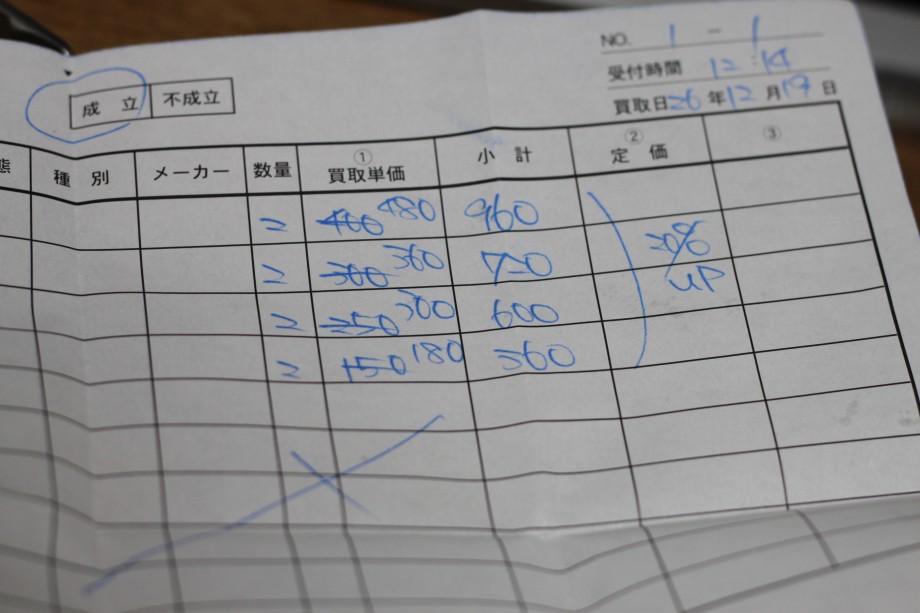 NO. 1 - 1
受付時間 12:14
買取日 26年12月19日
成立 不成立
態 種別 メーカー 数量 ①買取単価 小計 ②定価 ③
2 400 480 960
2 300 360 720 20%
2 250 300 600 UP
2 150 180 360